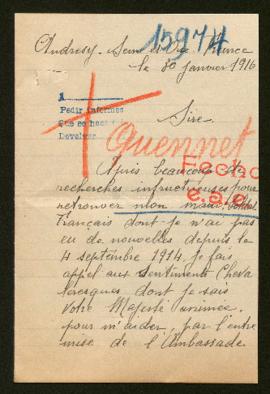 15974
Andrésy Seine et Oise France
le 30 janvier 1916
1
Pedir informes
Devolver
Sire,
Quennet
Fecho
Après beaucoup de
recherches infructueuses pour
retrouver mon mari, soldat
français dont je n'ai pas
eu de nouvelles depuis le
4 septembre 1914, je fais
appel aux sentiments cheva
leresques dont je sais
Votre Majesté animée
pour m'aider, par l'entre
mise de l'Ambassade